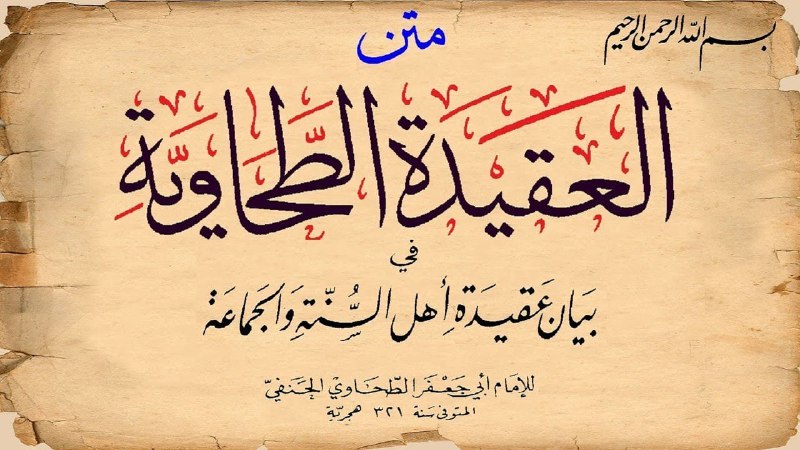 بسم الله الرحمن الرحيم
متن
العَقِيدَة الطَّحَاوِيَّةِ
في
بَيَان عَقيدَة أهل السُّنَّةِ وَالجَمَاعَة
للإمَام أبي جَعْفَر الطَّحَاوِيّ الحَنَفيّ
المتوفى سَنة ٣٢١ هجريّة